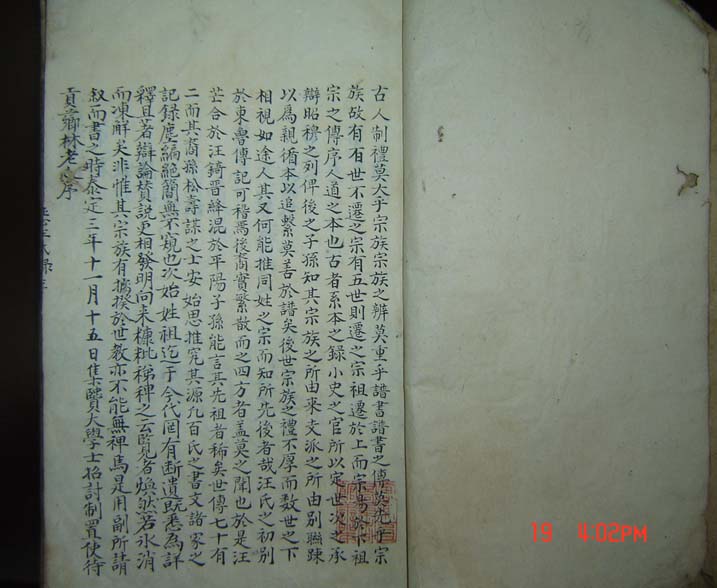 古人制禮莫大乎宗族宗族之辨莫重乎譜書譜書之傳莫先乎宗
族故有百世不遷之宗有五世則遷之宗祖遷於上而宗易於下祖
宗之傳序人道之本也古者系本之録小史之官所以定世次之承
辯昭穆之列俾後之子孫知其宗族之所由來支派之所由别聯踈
以為親循本以追繫莫善於譜矣後世宗族之禮不厚而数世之下
相視如途人其又何能推同姓之宗而知所先後者哉汪氏之初别
於東魯傳記可稽焉後裔實繁散而之四方者盖莫之聞也於是汪
芒合於汪錡晋絳混於平陽子孫能言其先祖者稀矣世傳七十有
二而其裔孫松壽謀之士安始思推究其源凢百氏之書文諸家之
記録塵編絶簡無不窺也次始姓祖迄于今代罔有断遺既悉為詳
釋且著辯論賛説更相發明向来糠粃稊稗之云覧者煥然若氷消
而凍觧矣非惟其宗族有攄揆於世教亦不能無裨焉是用副所請
叙而書之時泰定三年十一月十五日集賢大學士招討制置使待
貢章卿林老序
19 4:02PM